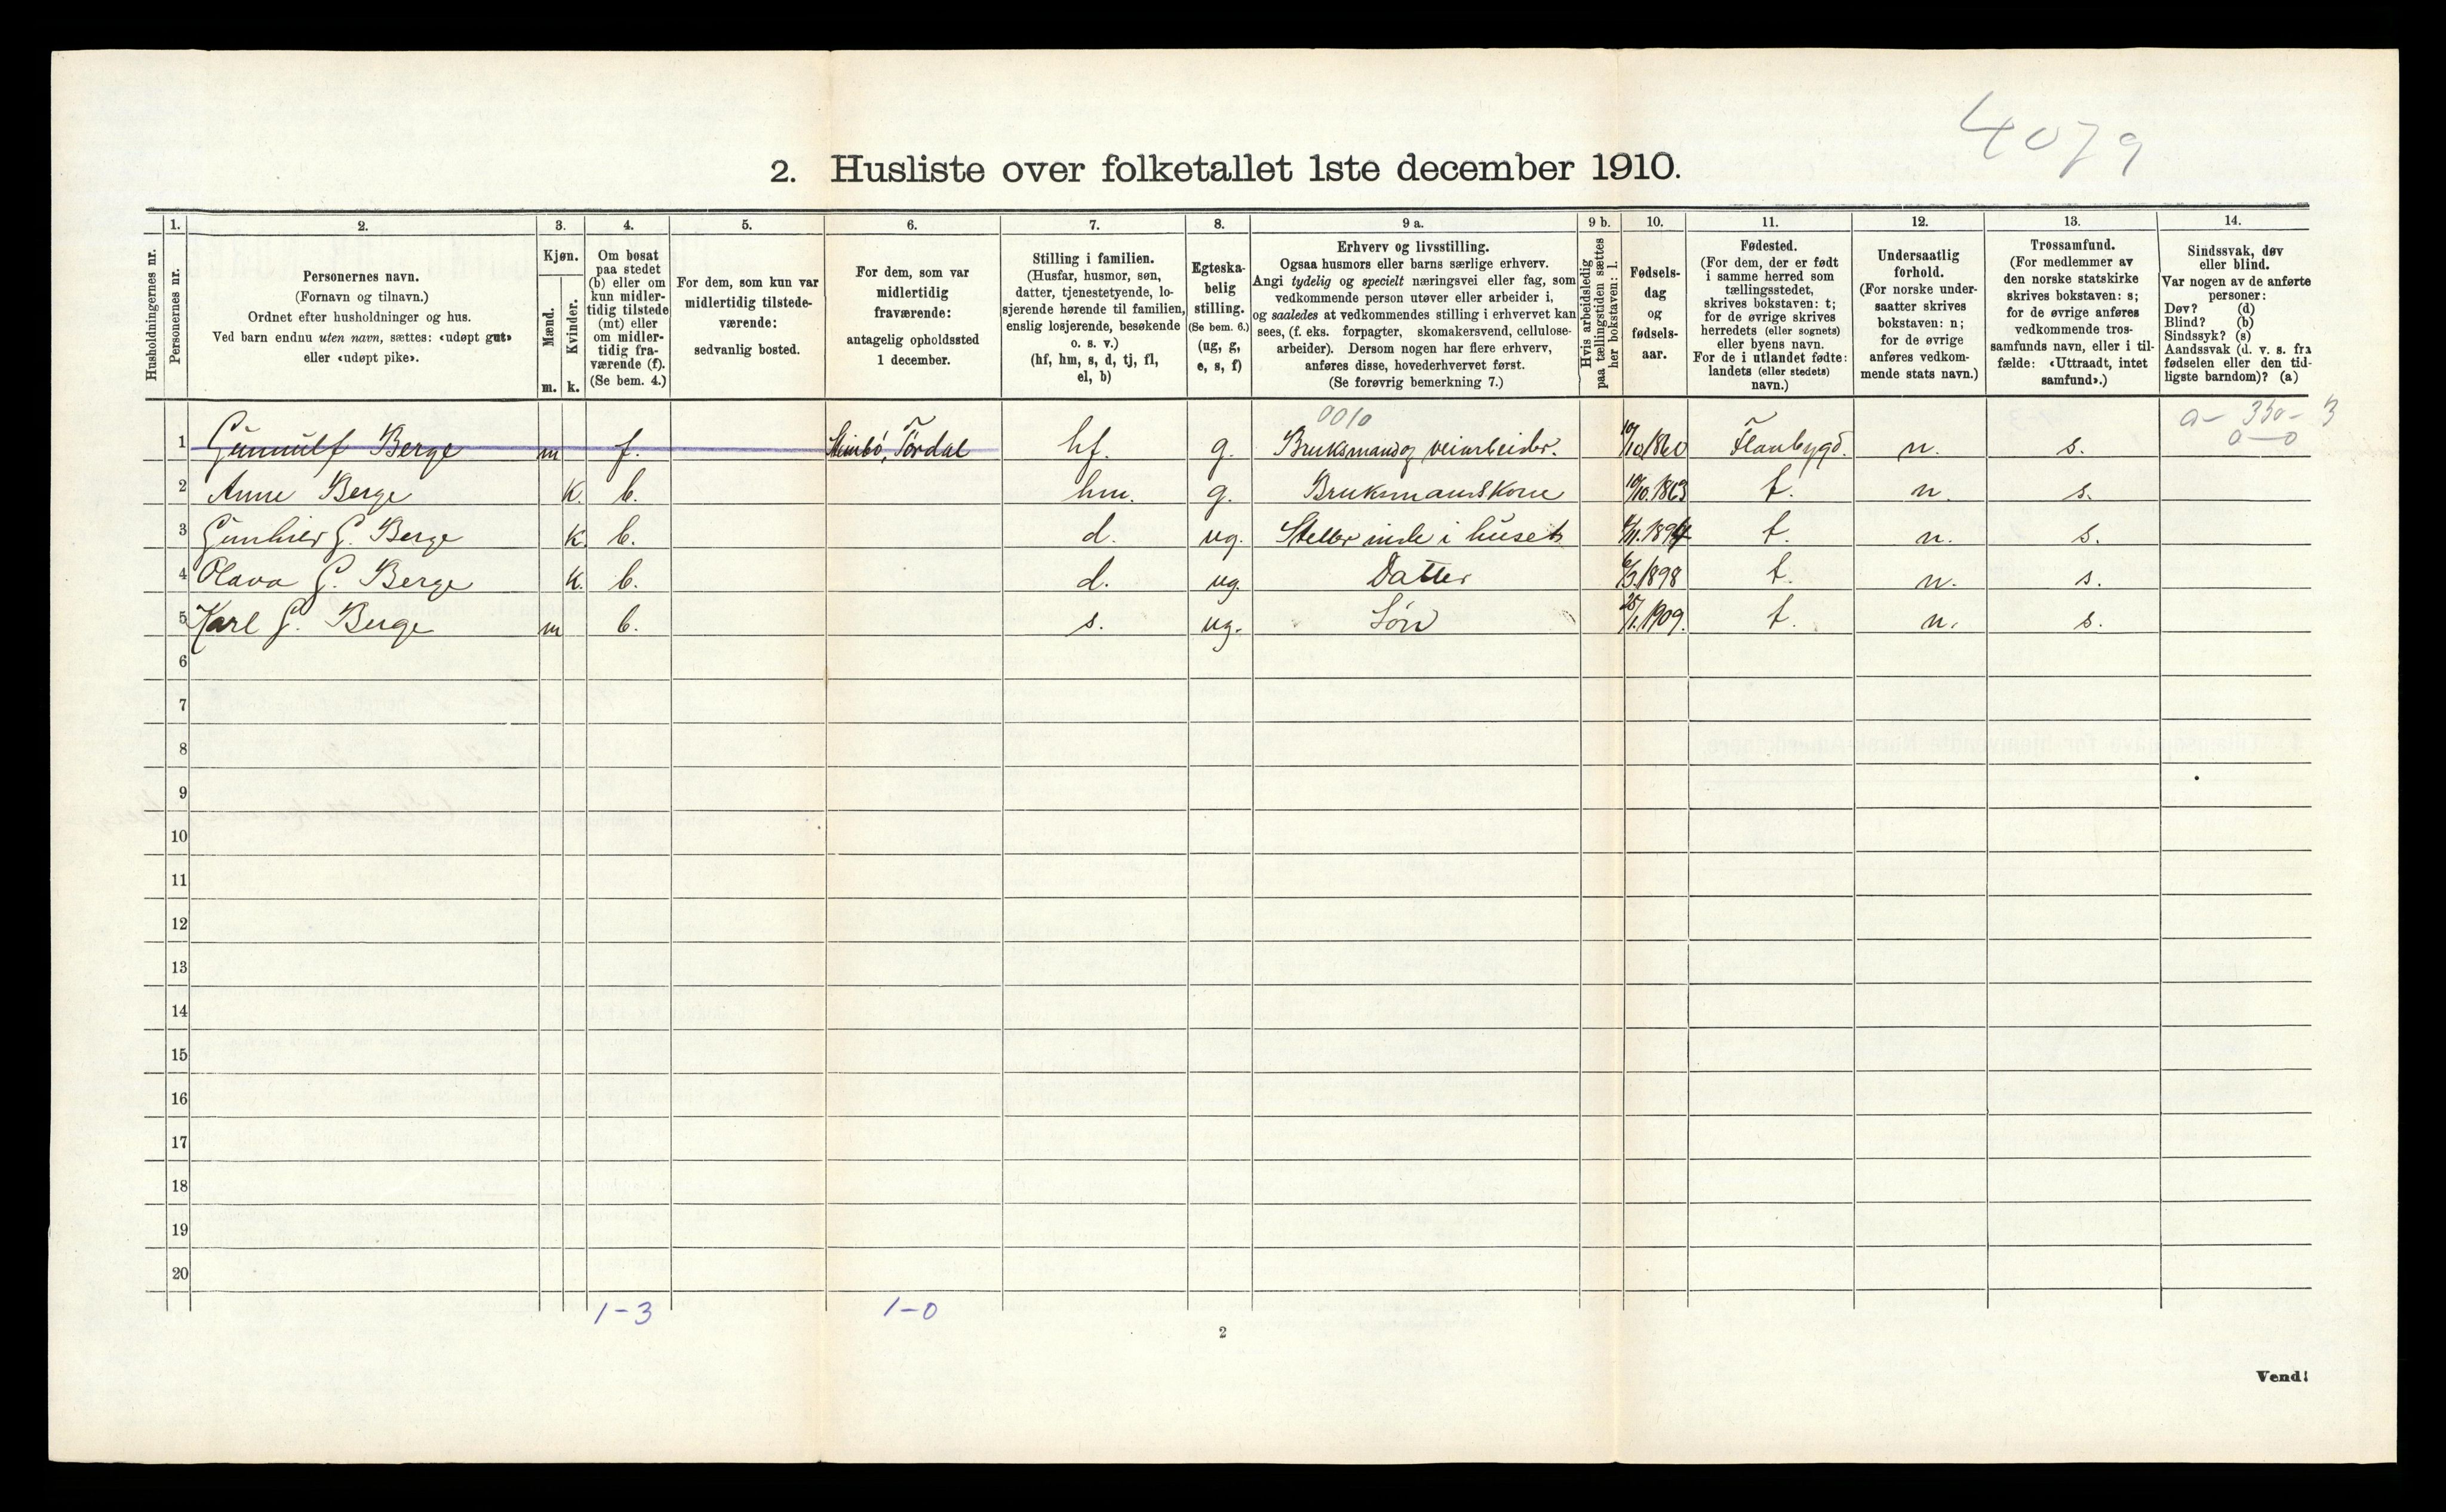 4079
2. Husliste over folketallet 1ste december 1910.
Husholdningernes nr.
1.
Personernes nr.
2.
Personernes navn.
(Fornavn og tilnavn.)
Ordnet efter husholdninger og hus.
Ved barn endnu uten navn, sættes: «udøpt gut»
eller «udøpt pike».
3.
Kjøn.
Mænd.
m.
Kvinder.
k.
4.
Om bosat
paa stedet
(b) eller om
kun midler-
tidig tilstede
(mt) eller
om midler-
tidig fra-
værende (f).
(Se bem. 4.)
5.
For dem, som kun var
midlertidig tilstede-
værende:
sedvanlig bosted.
6.
For dem, som var
midlertidig
fraværende:
antagelig opholdssted
1 december.
7.
Stilling i familien.
(Husfar, husmor, søn,
datter, tjenestetyende, lo-
sjerende hørende til familien,
enslig losjerende, besøkende
o. s. v.)
(hf, hm, s, d, tj, fl,
el, b)
8.
Egteska-
belig
stilling.
(Se bem. 6.)
(ug, g,
e, s, f)
9 a.
Erhverv og livsstilling.
Ogsaa husmors eller barns særlige erhverv.
Angi tydelig og specielt næringsvei eller fag, som
vedkommende person utøver eller arbeider i,
og saaledes at vedkommendes stilling i erhvervet kan
sees, (f. eks. forpagter, skomakersvend, cellulose-
arbeider). Dersom nogen har flere erhverv,
anføres disse, hovederhvervet først.
(Se forøvrig bemerkning 7.)
9 b.
Hvis arbeidsledig
paa tællingstiden sættes
her bokstaven: l.
10.
Fødsels-
dag
og
fødsels-
aar.
11.
Fødested.
(For dem, der er født
i samme herred som
tællingsstedet,
skrives bokstaven: t;
for de øvrige skrives
herredets (eller sognets)
eller byens navn.
For de i utlandet fødte:
landets (eller stedets)
navn.)
12.
Undersaatlig
forhold.
(For norske under-
saatter skrives
bokstaven: n;
for de øvrige
anføres vedkom-
mende stats navn.)
13.
Trossamfund.
(For medlemmer av
den norske statskirke
skrives bokstaven: s;
for de øvrige anføres
vedkommende tros-
samfunds navn, eller i til-
fælde: «Uttraadt, intet
samfund».)
14.
Sindssvak, døv
eller blind.
Var nogen av de anførte
personer:
Døv? (d)
Blind? (b)
Sindssyk? (s)
Aandssvak (d. v. s. fra
fødselen eller den tid-
ligste barndom)? (a)
0010
1 Gunnulf Berge m f. Tördal hf. g. Bruksmand og veiarbeider. 10/10 1860 Flaabygd. n. s.
0-0
2 Anne Berge K. b. hm. g. Bruksmandskone 10/10. 1863 t. n. s.
3 G. Berge K. b. d. ug. Steller inde i huset t. n. s.
4 Olava G. Berge K. b. d. ug. Datter 1898 t. n. s.
5 Karl G. Berge m b. s. ug. Sön 25/1. 1909. t. n. s.
6
7
8
9
10
11
12
13
14
15
16
17
18
19
20
1-3
1-0
2
Vend!